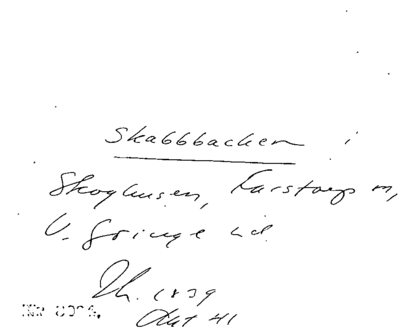 Skabbbacken i
Skoghusen, Farstorps sn,
V. Göinge hd.
1839
Akt 41